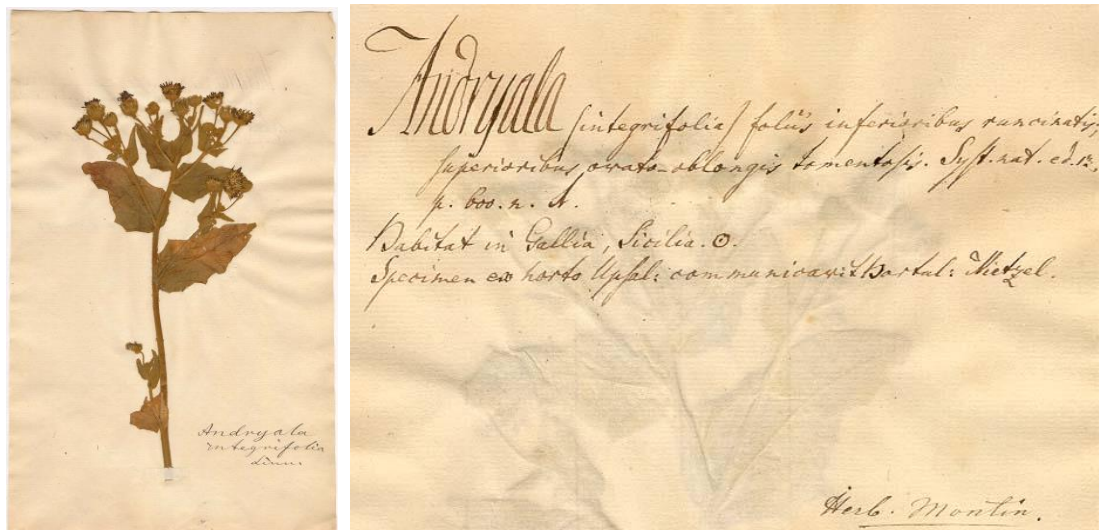 Andryala
integrifolia
Linn.
Andryala (integrifolia) foliis inferioribus runcinatis,
superioribus ovato-oblongis tomentosis. Syst. nat. ed. 12.
p.
Habitat in Gallia, Sicilia. ⊙.
Specimen ex horto Upsal: communicavit Hortul: Nietzel.
Herb. Montin.